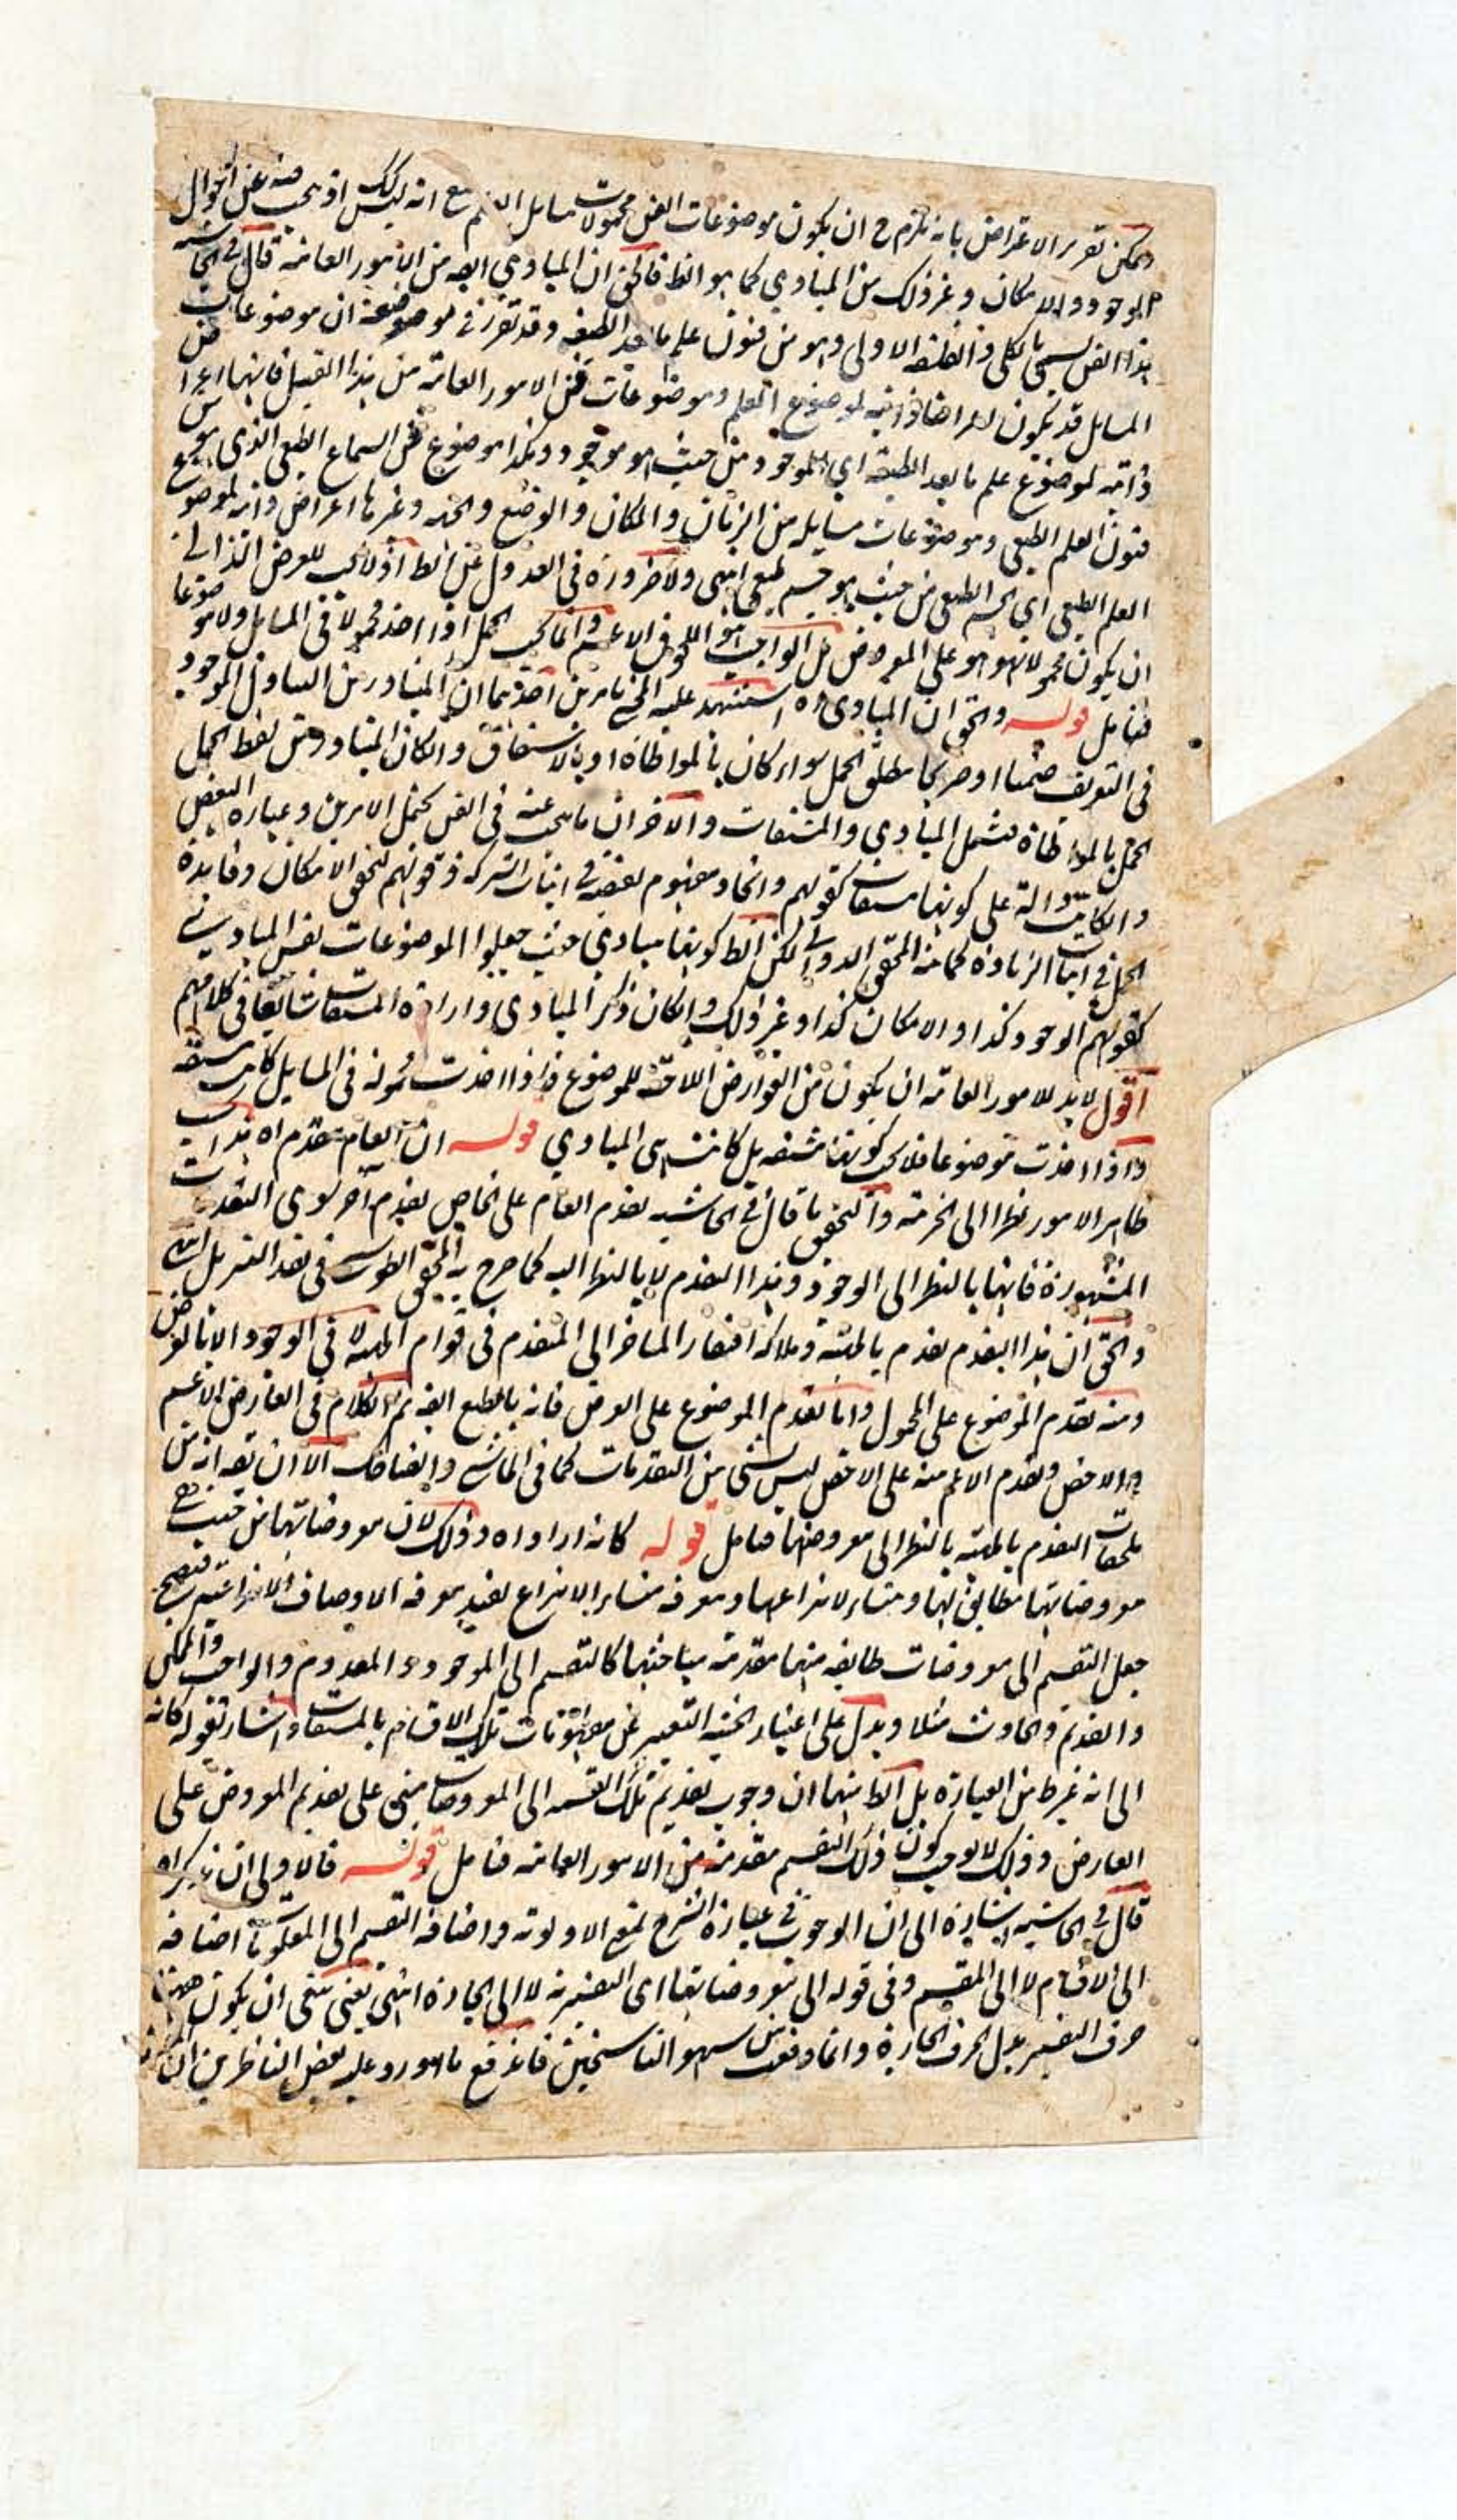 ويمكن تقرير الاعتراض بانه يلزم ح ان يكون موضوعات الفن محمولات مسايل العلم مع انه ليس كذلك اذ يبحث فيه عن احوال
الوجود والامكان وغير ذلك من المبادي كما هو الظ فالحق ان المبادي ايضه من الامور العامة قال في الحاشيه
هذا الفن يسمى بالكلي والفلسفه الاولى وهو من فنون علم ما بعد الطبيعه وقد تقرر في موضوعه ان موضوعات
المسايل قد يكون اعراضا ذاتيه لموضوع العلم وموضوعات فن الامور العامة من هذا القبيل فانها اعراض
ذاتيه لموضوع علم ما بعد الطبيعه اي الموجود من حيث هو موجود وهكذا موضوع فن السماع الطبعي الذي هو من
فنون العلم الطبعي وموضوعات مسايله من الزمان والمكان والوضع والحيز وغيرها اعراض ذاتيه لموضوع
العلم الطبعي اي الجسم الطبعي من حيث هو جسم طبعي انتهى ولا ضرورة في العدول عن الظ اذ لا يجب للعرض الذاتي
ان يكون محمولا بهو هو على المعروض بل الواجب هو اللحوق الاعم وانما يجب الحمل اذا اخذ محمولا في المسايل ولا موضوعا
فتامل قوله والحق ان المبادي اه استشهد عليه المحشي بامرين احدهما ان المتبادر من التناول الموجود
في التعريف ضمنا او صريحا مطلق الحمل سواء كان بالمواطاة او بالاشتقاق والكان المتبادر من لفظ الحمل
الحمل بالمواطاة فيشمل المبادي والمشتقات والآخر ان ما يبحث عنه في الفن يحتمل الامرين وعبارة البعض
وان كانت دالة على كونها مشتقات كقولهم واتحاد مفهوم نقيضه في اثبات الشركه وقولهم لتحقق الامكان وفايدة
الحمل في اثبات الزيادة كما عند المحقق الدواني لكن الظ كونها مبادي حيث جعلوا الموضوعات نفس المبادي
كقولهم الوجود كذا والامكان كذا وغير ذلك وان كان ذكر المبادي وارادة المشتقات شايعا في كلامهم
اقول لا بد للامور العامة ان يكون من العوارض اللاحقة للموضوع فاذا اخذت محمولة في المسايل كانت مشتقه
واذا اخذت موضوعا فلا يجب كونها مشتقه بل كانت هي المبادي قوله ان العام يتقدم اه هذا بحسب
ظاهر الامور نظرا الى الجزئية والتحقيق ما قال في الحاشيه تقدم العام على الخاص تقدم آخر سوى التقدمات
المشهورة فانها بالنظر الى الوجود وهذا التقدم لا بالنظر اليه كما صرح به المحقق الطوسي في نقد التنزيل انتهى
والحق ان هذا التقدم تقدم بالمهية وملاكه افتقار المتاخر الى المتقدم في قوام المهية لا في الوجود الا بالعرض
ومنه تقدم الموضوع على المحمول واما تقدم الموضوع على العرض فانه بالطبع ايضه ثم الكلام في العارض الاعم
والاخص وتقدم الاعم منه على الاخص ليس بشيء من التقدمات كما في الحاشيه الا ان يقه انه من
ملحقات التقدم بالمهية بالنظر الى معروضها فتامل قوله كانه اراد اه وذلك لان معروضاتها من حيث هي
معروضاتها مطابق لها ومنشاء لانتزاعها ومعرفه منشاء الانتزاع يفيد معرفه الاوصاف الانتزاعيه فيصح
جعل التقسيم الى معروضات طايفه منها مقدمة مباحثها كالتقسيم الى الموجود والمعدوم والواجب والممكن
والقديم والحادث مثلا ويدل على اعتبار الحيثيه التعبير عن مفهومات تلك الاقسام بالمشتقات واشار بقوله كانه
الى انه غير ظ من العبارة بل الظ منها ان وجوب تقديم تلك القسمه الى المعروضات مبني على تقديم المعروض على
العارض وذلك لا يوجب كون ذلك التقسيم مقدمة من الامور العامة فتامل قوله فالاولى ان يذكر اه
قال في الحاشيه اشارة الى ان الوجوب في عبارة الشرح بمعنى الاولويه واضافة التقسيم الى المعلومات اضافه
الى الاقسام لا الى المقسم وفي قوله الى معروضاتها اى التفسيرية لا الى الجارة انتهى يعني ينبغي ان يكون ههنا
حرف التفسير بدل الحرف الجارة وانما وقعت من سهو الناسخين فاندفع ما اورد عليه بعض الناظرين ان